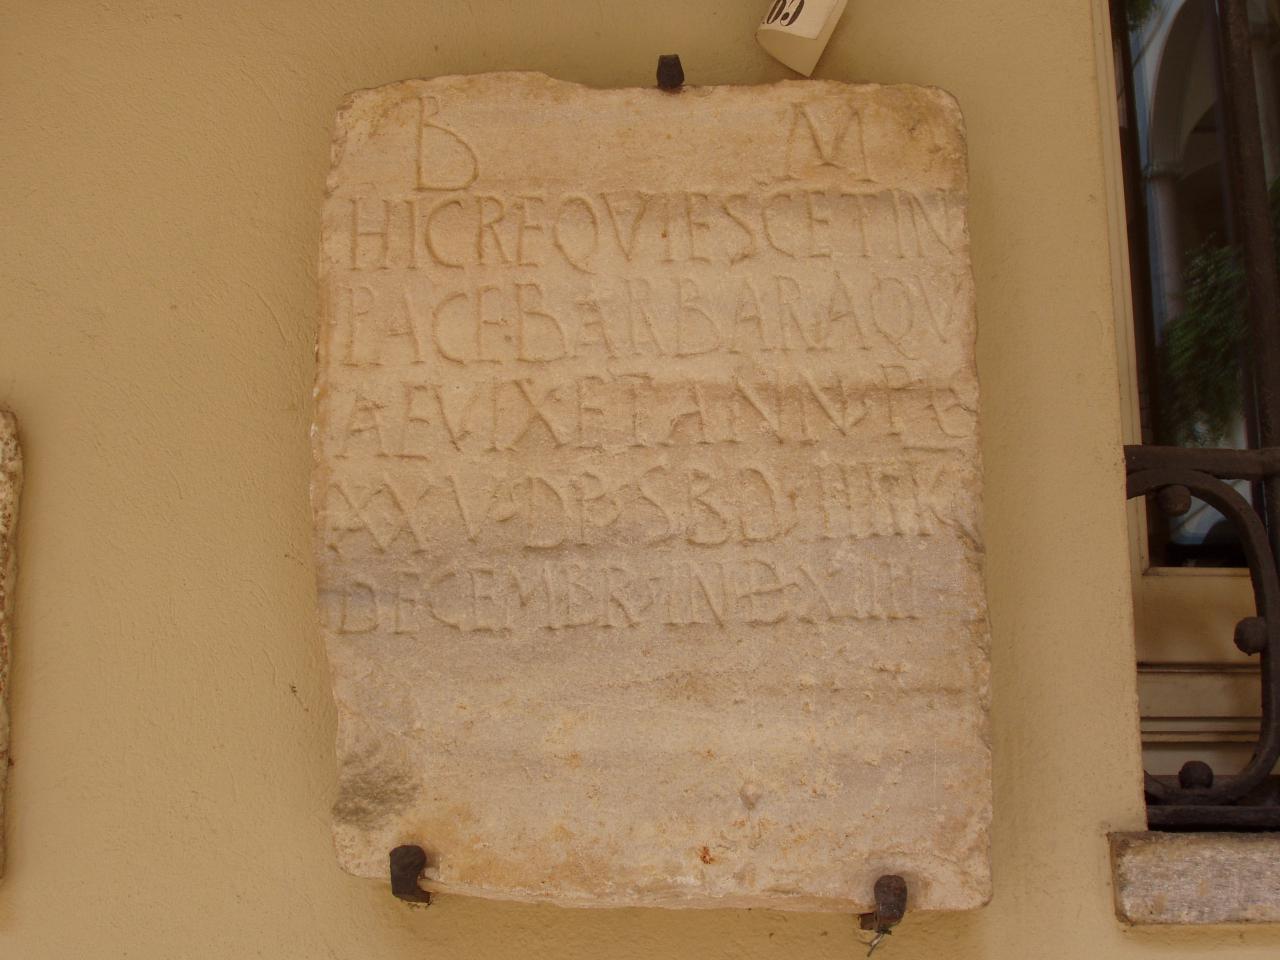 B M
HIC REQVIESCET IN
PACE·BARBARA QV
AE VIXET ANN·PL
XXV·DP·S B D·IIII K
DECEMBR·IND XIII